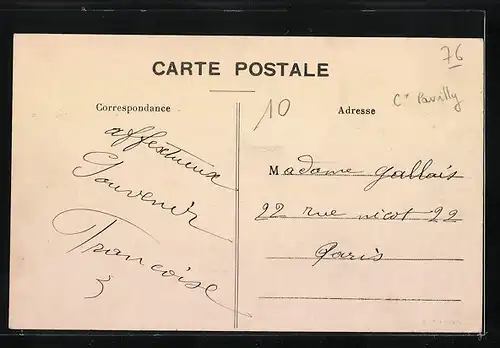 76
CARTE POSTALE
Correspondance
10
Adresse
Cⁿ Pavilly
affectueux
Souvenir
Françoise
Madame Gallais
22 rue nicot 22
Paris